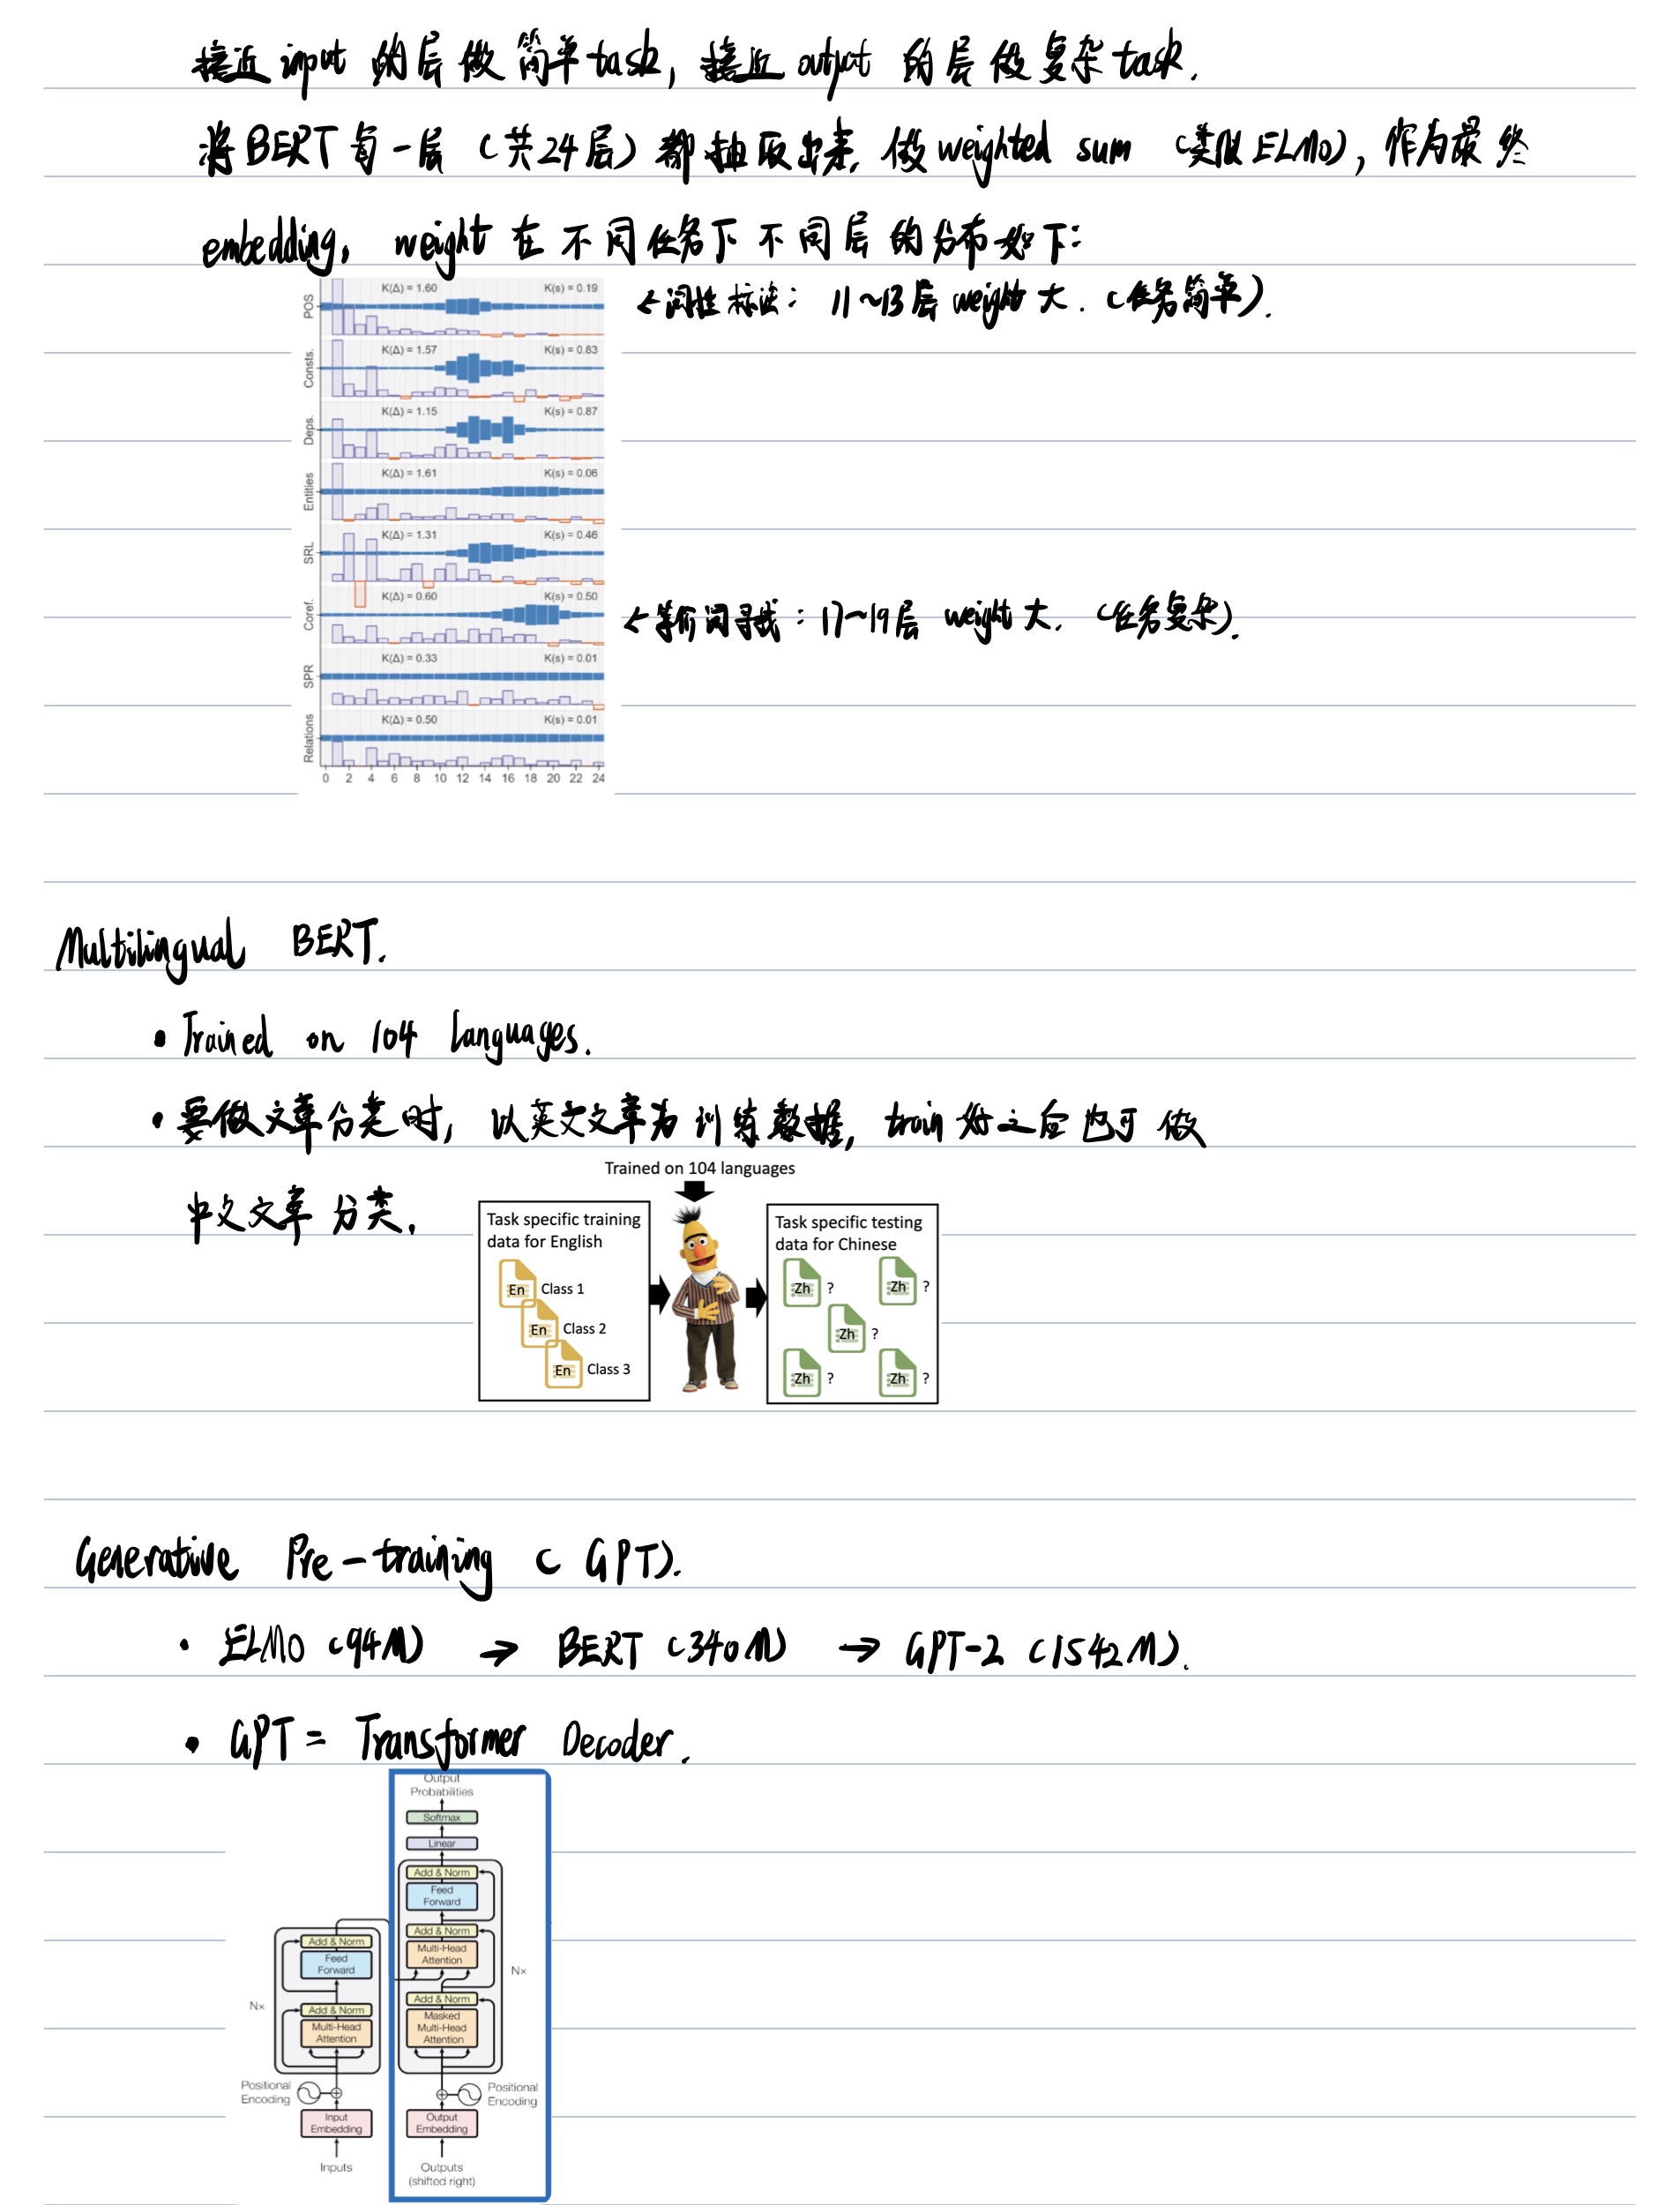 接近 input 的层做简单task, 接近 output 的层做复杂task.
将BERT每一层（共24层）都抽取出来, 做weighted sum （类似ELMO), 作为最终
embedding, weight 在不同任务下不同层的分布如下:
POS K(Δ) = 1.60 K(s) = 0.19
←词性标注: 11~13层 weight 大. (任务简单).
Consts. K(Δ) = 1.57 K(s) = 0.83
Deps. K(Δ) = 1.15 K(s) = 0.87
Entities K(Δ) = 1.61 K(s) = 0.06
SRL K(Δ) = 1.31 K(s) = 0.46
Coref. K(Δ) = 0.60 K(s) = 0.50
←等价词寻找: 17~19层 weight 大. (任务复杂).
SPR K(Δ) = 0.33 K(s) = 0.01
Relations K(Δ) = 0.50 K(s) = 0.01
0 2 4 6 8 10 12 14 16 18 20 22 24
Multilingual BERT.
• Trained on 104 languages.
• 要做文章分类时, 以英文文章为训练数据, train 好之后也可做
中文文章分类.
Trained on 104 languages
Task specific training
data for English
En Class 1
En Class 2
En Class 3
Task specific testing
data for Chinese
Zh ? Zh ?
Zh ?
Zh ? Zh ?
Generative Pre-training (GPT).
• ELMO (94M) → BERT (340M) → GPT-2 (1542M).
• GPT = Transformer Decoder.
Output
Probabilities
Softmax
Linear
Add & Norm
Feed
Forward
Add & Norm
Multi-Head
Attention
Add & Norm
Masked
Multi-Head
Attention
N×
Positional
Encoding
Output
Embedding
Outputs
(shifted right)
Add & Norm
Feed
Forward
N×
Add & Norm
Multi-Head
Attention
Positional
Encoding
Input
Embedding
Inputs